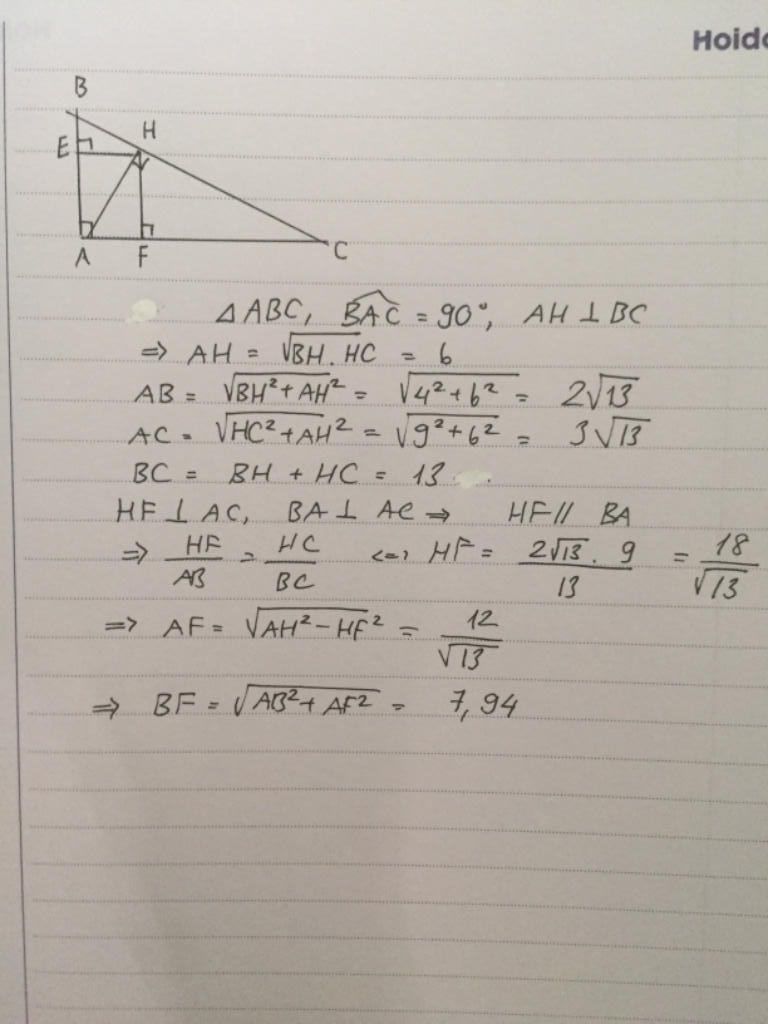 Hoid
B
E
H
A
F
C
△ABC, \widehat{BAC} = 90°, AH ⊥ BC
⇒ AH = √(BH.HC) = 6
AB = √(BH²+AH²) = √(4²+6²) = 2√13
AC = √(HC²+AH²) = √(9²+6²) = 3√13
BC = BH + HC = 13
HF ⊥ AC, BA ⊥ AC ⇒ HF // BA
⇒ HF/AB = HC/BC <=> HF = (2√13 . 9)/13 = 18/√13
⇒ AF = √(AH²-HF²) = 12/√13
⇒ BF = √(AB²+AF²) = 7,94